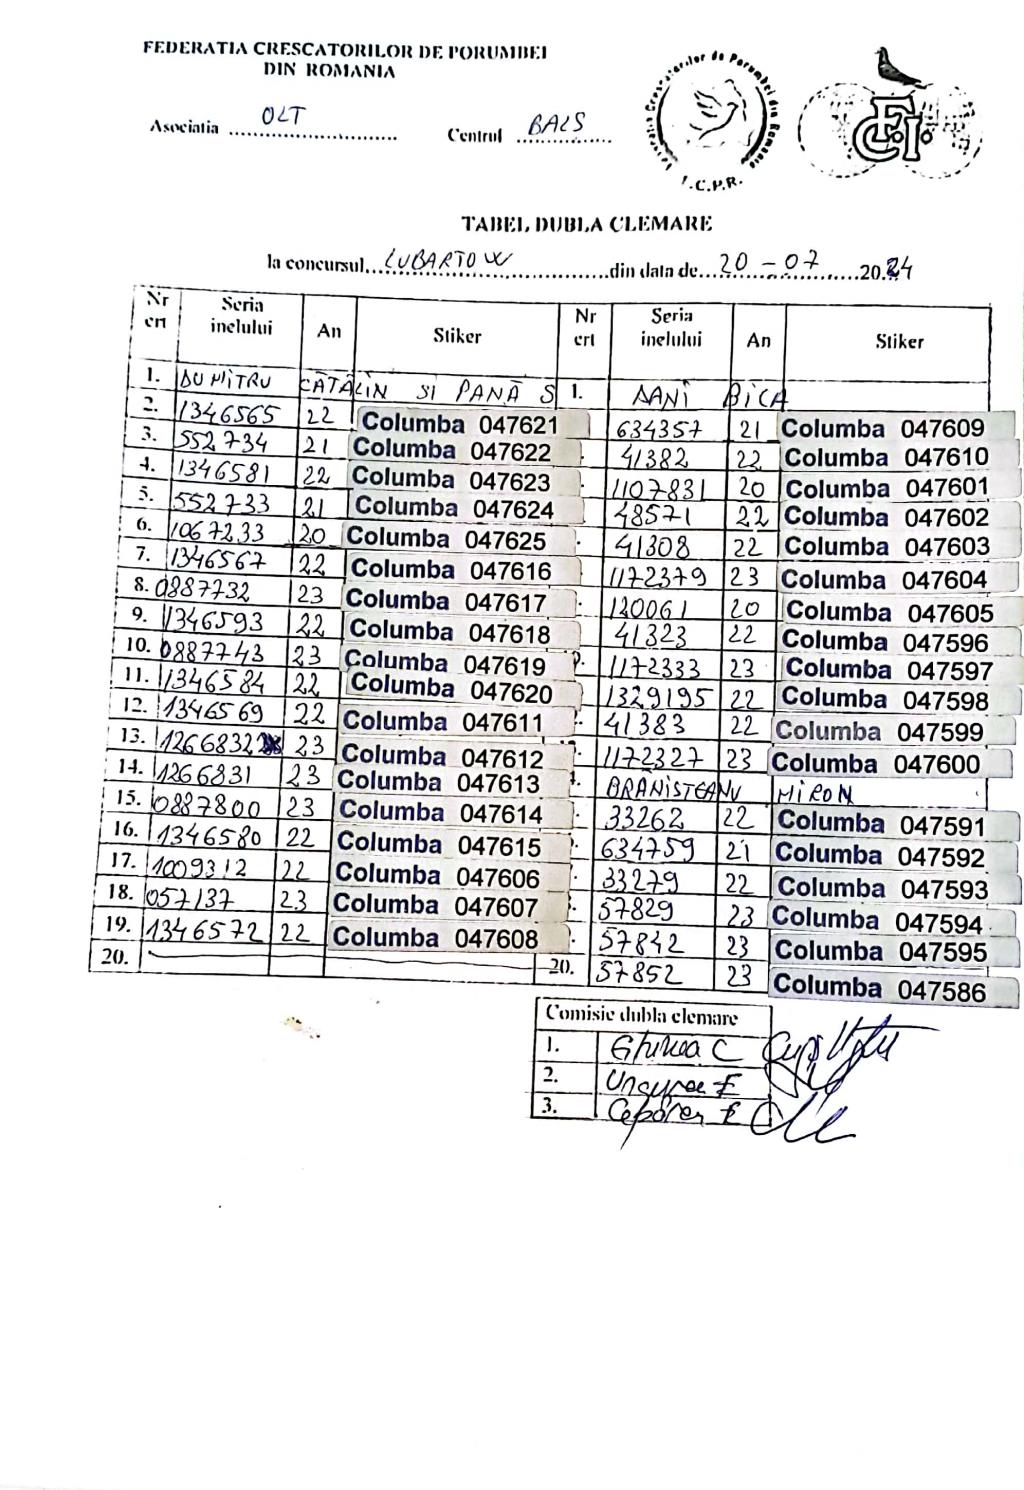 FEDERATIA CRESCATORILOR DE PORUMBEI
DIN ROMANIA
Asociatia OLT Centrul BALS
F.C.P.R.
FCI
TABEL DUBLA CLEMARE
la concursul LUBARTOW din data de 20-07 2024
Nr crt Seria inelului An Stiker Nr crt Seria inelului An Stiker
1. DUMITRU CĂTĂLIN SI PANĂ S 1. DANI BICA
2. 1346565 22 Columba 047621 634357 21 Columba 047609
3. 552734 21 Columba 047622 41382 22 Columba 047610
4. 1346581 22 Columba 047623 1107831 20 Columba 047601
5. 552733 21 Columba 047624 48571 22 Columba 047602
6. 1067233 20 Columba 047625 41308 22 Columba 047603
7. 1346567 22 Columba 047616 1172379 23 Columba 047604
8. 0887732 23 Columba 047617 120061 20 Columba 047605
9. 1346593 22 Columba 047618 41323 22 Columba 047596
10. 0887743 23 Columba 047619 1172333 23 Columba 047597
11. 1346584 22 Columba 047620 1329195 22 Columba 047598
12. 1346569 22 Columba 047611 41383 22 Columba 047599
13. 1266832 23 Columba 047612 1172327 23 Columba 047600
14. 1266831 23 Columba 047613 BRĂNISTEANU MIRON
15. 0887800 23 Columba 047614 33262 22 Columba 047591
16. 1346580 22 Columba 047615 634759 21 Columba 047592
17. 1009312 22 Columba 047606 33279 22 Columba 047593
18. 057137 23 Columba 047607 57829 23 Columba 047594
19. 1346572 22 Columba 047608 57842 23 Columba 047595
20. 20. 57852 23 Columba 047586
Comisie dubla clemare
1. Ghinea C
2.
3.